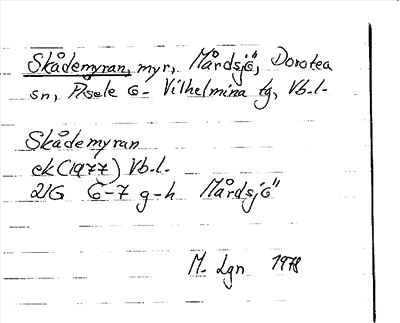 Skådemyran, myr, Mårdsjö, Dorotea
sn, Åsele o- Vilhelmina tg, Vb.l.
Skådemyran
ek (1977) Vb.l.
21G 6-7 g-h Mårdsjö
M. Lgn 1978